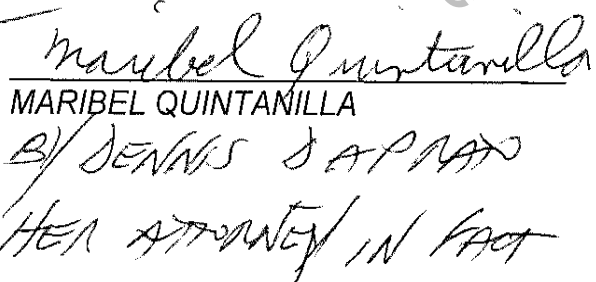 Maribel Quintanilla
MARIBEL QUINTANILLA
BY DENNIS
HER ATTORNEY IN FACT